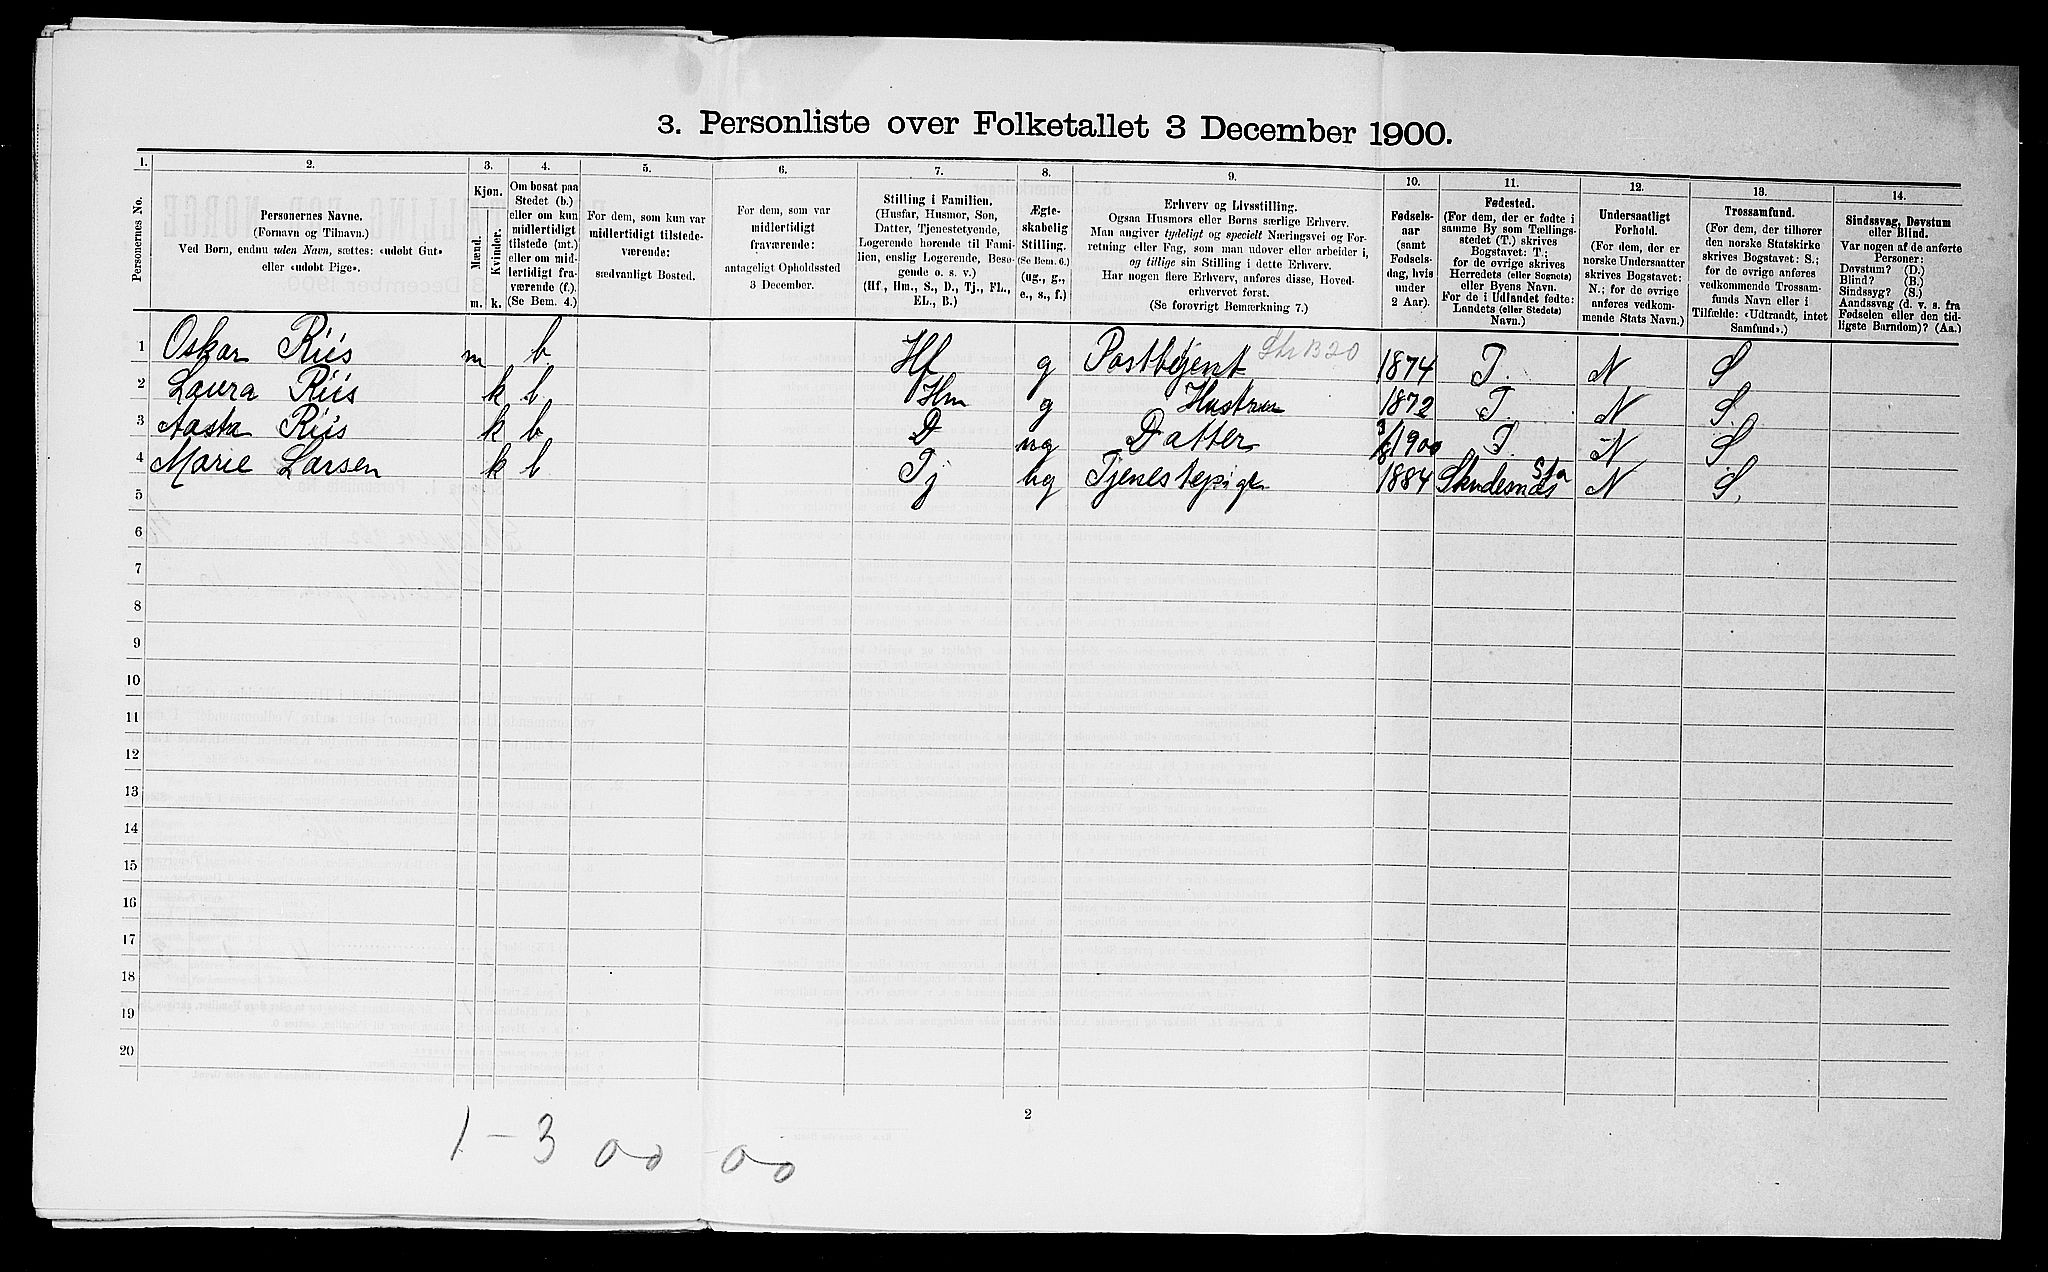 3. Personliste over Folketallet 3 December 1900.
1. 2. 3. 4. 5. 6. 7. 8. 9. 10. 11. 12. 13. 14.
Personernes No.
Personernes Navne.
(Fornavn og Tilnavn.)
Ved Børn, endnu uden Navn, sættes: «udøbt Gut»
eller «udøbt Pige».
Kjøn.
Mænd. Kvinder.
m. k.
Om bosat paa
Stedet (b.)
eller om kun
midlertidigt
tilstede (mt.)
eller om mid-
lertidigt fra-
værende (f.).
(Se Bem. 4.)
For dem, som kun var
midlertidigt tilstede-
værende:
sædvanligt Bosted.
For dem, som var
midlertidigt
fraværende:
antageligt Opholdssted
3 December.
Stilling i Familien.
(Husfar, Husmor, Søn,
Datter, Tjenestetyende,
Logerende hørende til Fami-
lien, enslig Logerende, Besø-
gende o. s. v.)
(Hf., Hm., S., D., Tj., FL.,
EL., B.)
Ægte-
skabelig
Stilling.
(Se Bem. 6.)
(ug., g.,
e., s., f.)
Erhverv og Livsstilling.
Ogsaa Husmors eller Børns særlige Erhverv.
Man angiver tydeligt og specielt Næringsvei og For-
retning eller Fag, som man udøver eller arbeider i,
og tillige sin Stilling i dette Erhverv.
Har nogen flere Erhverv, anføres disse, Hoved-
erhvervet først.
(Se forøvrigt Bemærkning 7.)
Fødsels-
aar
(samt
Fødsels-
dag, hvis
under
2 Aar).
Fødested.
(For dem, der er fødte i
samme By som Tællings-
stedet (T.) skrives
Bogstavet: T.;
for de øvrige skrives
Herredets (eller Sognets)
eller Byens Navn.
For de i Udlandet fødte:
Landets (eller Stedets)
Navn.)
Undersaatligt
Forhold.
(For dem, der er
norske Undersaatter
skrives Bogstavet:
N.; for de øvrige
anføres vedkom-
mende Stats Navn.)
Trossamfund.
(For dem, der tilhører
den norske Statskirke
skrives Bogstavet: S.;
for de øvrige anføres
vedkommende Trossam-
funds Navn eller i
Tilfælde: «Udtraadt, intet
Samfund».)
Sindssvag, Døvstum
eller Blind.
Var nogen af de anførte
Personer:
Døvstum? (D.)
Blind? (B.)
Sindssyg? (S.)
Aandssvag (d. v. s. fra
Fødselen eller den tid-
ligste Barndom)? (Aa.)
1 Oskar Riis m b Hf g Postbetjent 1874 T. N S
2 Laura Riis k b Hm g Hustru 1872 T. N S.
3 Aasta Riis k b D ug Datter 1900 T. N S
4 Marie Larsen k b Tj ug Tjenestepige 1884 Skudesnes N S.
5
6
7
8
9
10
11
12
13
14
15
16
17
18
19
20
2
1 – 3 00 00